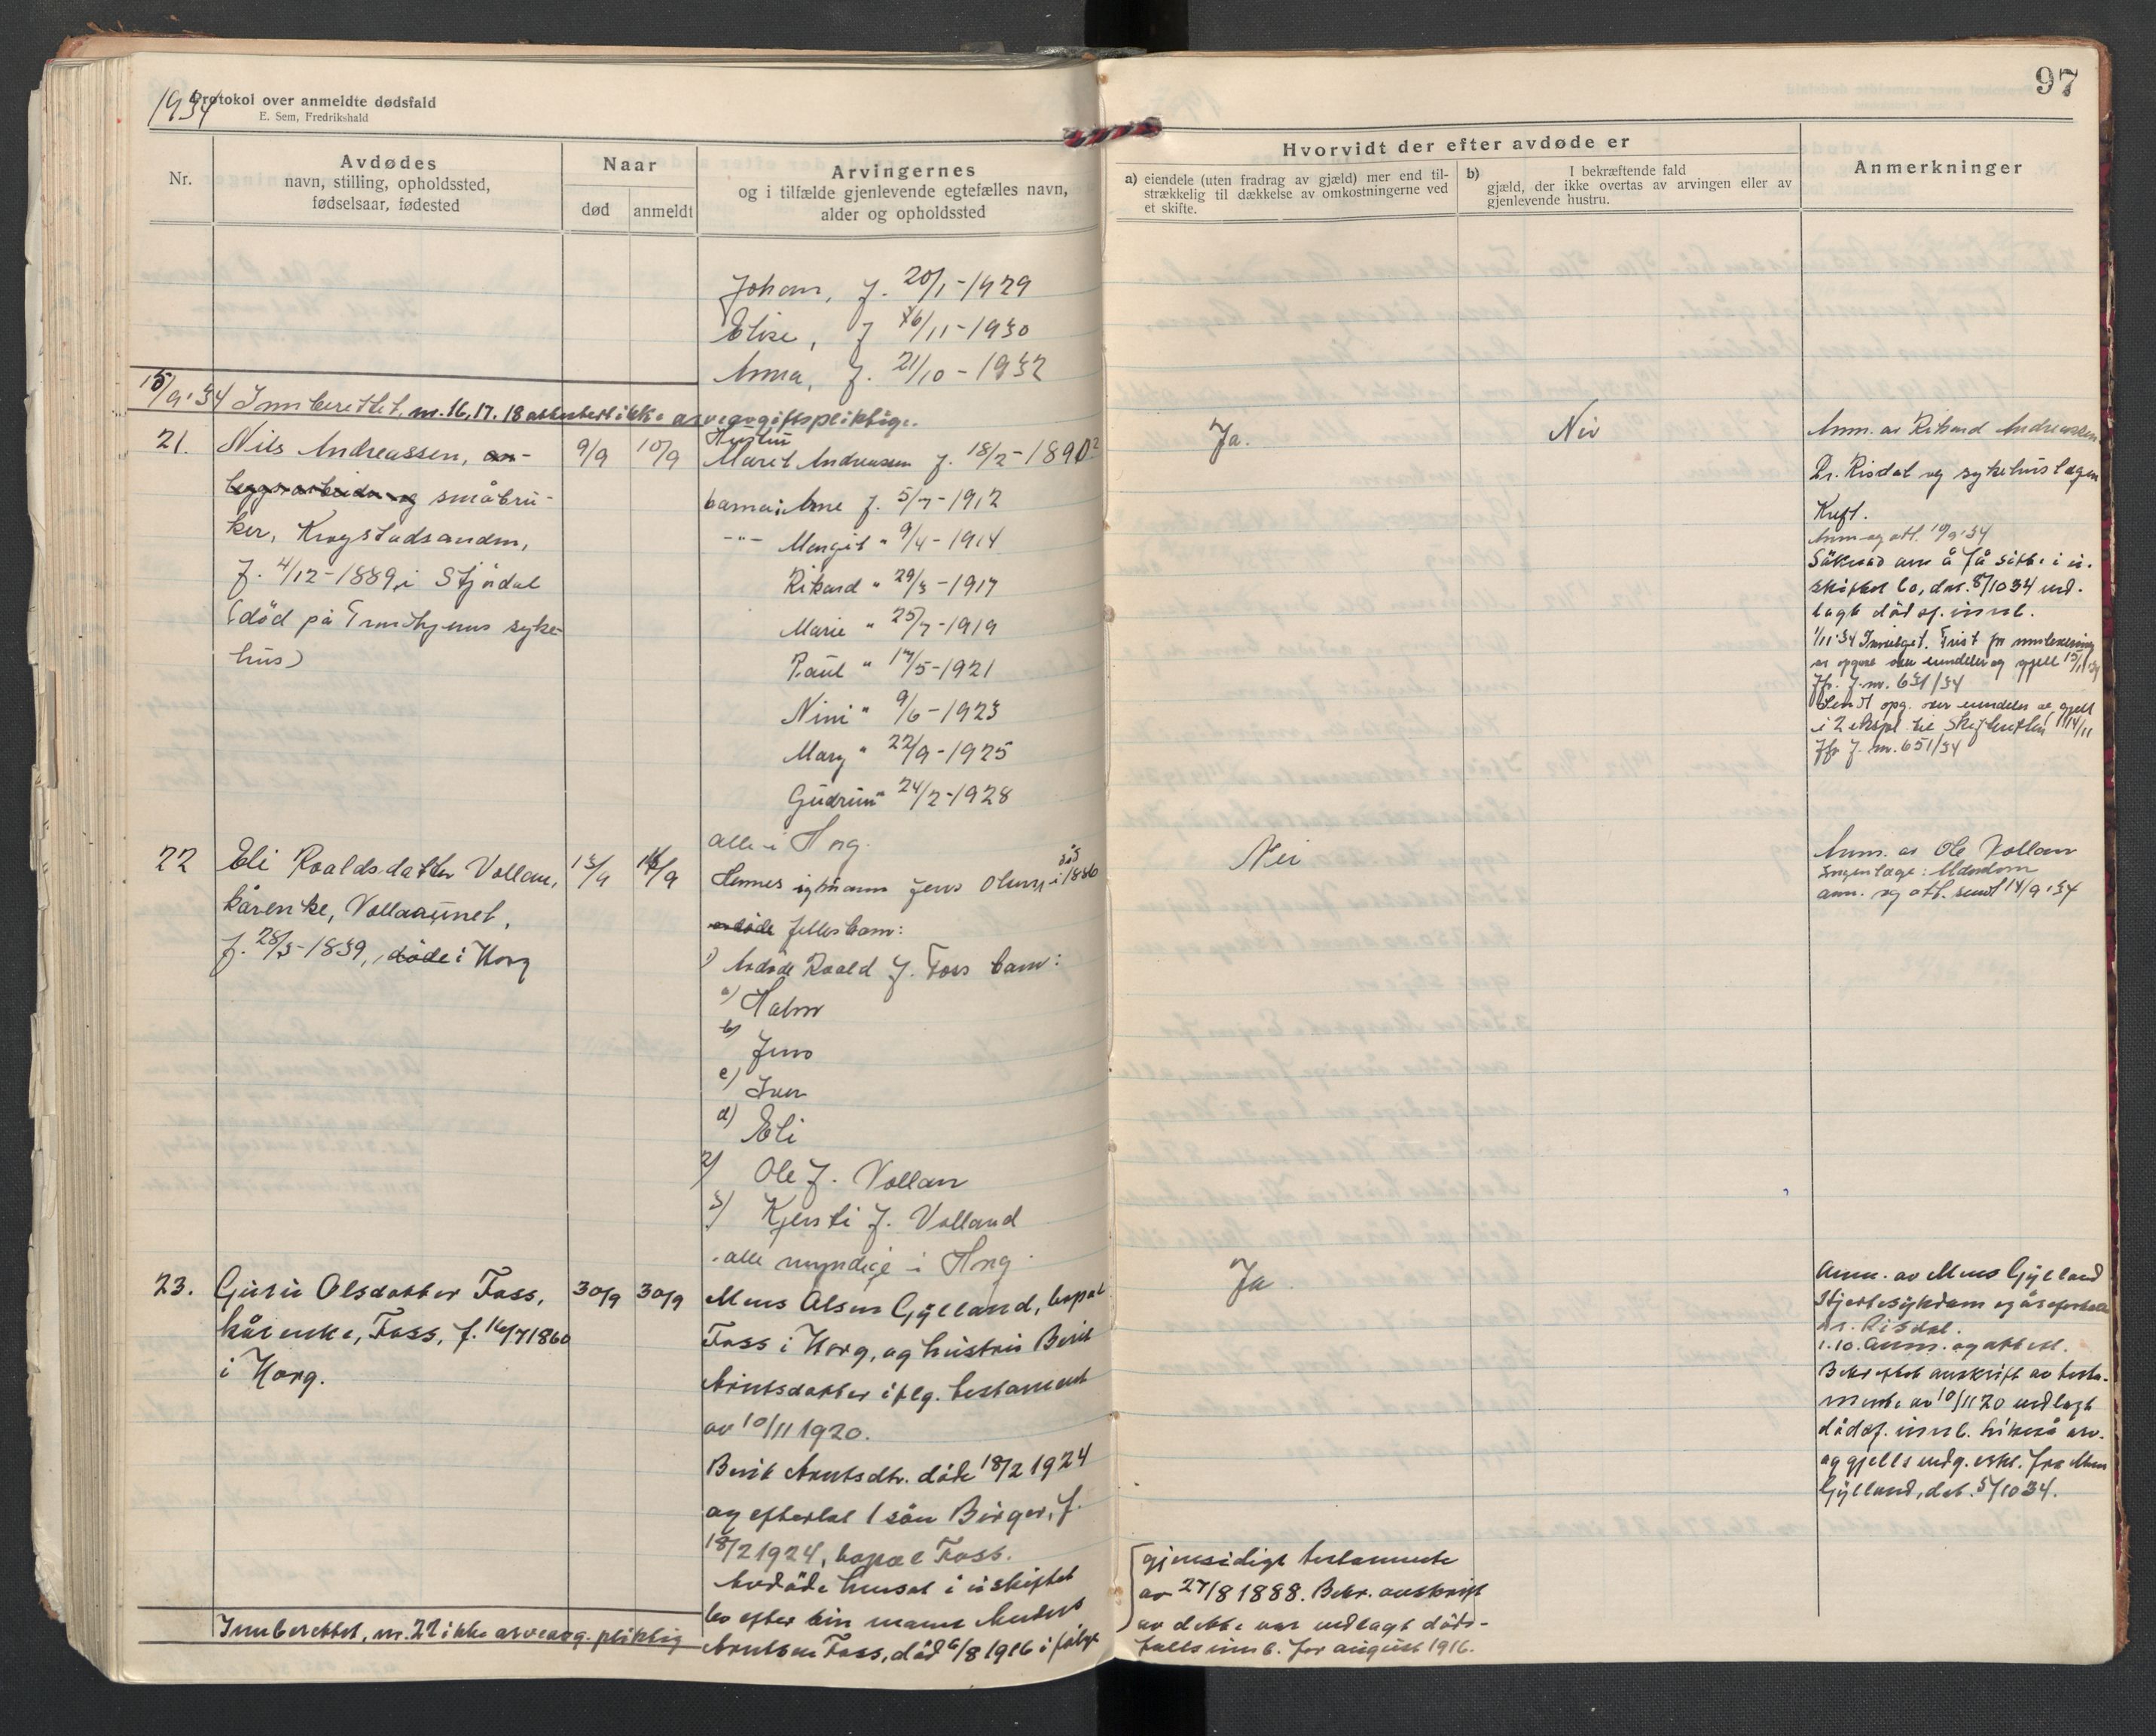 1934
Protokol over anmeldte dødsfald
E. Sem, Fredrikshald
97
Nr.
Avdødes
navn, stilling, opholdssted,
fødselsaar, fødested
Naar
død
anmeldt
Arvingernes
og i tilfælde gjenlevende egtefælles navn,
alder og opholdssted
Hvorvidt der efter avdøde er
a) eiendele (uten fradrag av gjæld) mer end til-
strækkelig til dækkelse av omkostningerne ved
et skifte.
b) I bekræftende fald
gjæld, der ikke overtas av arvingen eller av
gjenlevende hustru.
Anmerkninger
Johan, f. 20/1-1929
Elise, f 16/11-1930
Anna, f. 21/10-1932
15/9.34 Innberettet, nr. 16, 17. 18 attestert ikke arveavgiftspliktige.
21.
Nils Andreassen, an-
leggsarbeider og småbru-
ker, Krogstadsanden,
f. 4/12-1889, i Stjørdal
(död på Trondhjems syke-
hus)
9/9
10/9
Hustru
Marit Andreassen f. 18/2-1890?
barna: Arne f. 5/7-1912
-"- Margit " 9/4-1914
Rikard " 29/3-1917
Marie " 25/7-1919
Paul " 17/5-1921
Nini " 9/6-1923
Mary " 22/9-1925
Gudrun " 24/2-1928
alle i Horg.
Ja.
Nei
Anm. av Rikard Andreassen
Dr. Risdal og sykehuslægen
Kreft.
Anm og att. 10/9.34
Søknad om å få sitte i u-
skiftet bo, dat. 8/10 34 ved-
lagt dödsf. innb.
1/11.34 Innvilget. Frist for innlevering
av opgave over eiendeler og gjell 15/11.34
Jfr. J. nr. 631/34
Sendt opg. over eiendeler og gjell
i 2 ekspl. til Skifteretten 14/11
Jfr J. nr. 651/34
22
Eli Roaldsdatter Vollan,
kårenke, Vollaaunet,
f. 28/3-1839, döde i Horg
13/9
14/9
Hennes egtmann Jens Olsen död i 1886
avdöde fellesbarn:
1) Avdöde Roald J. Foss barn:
a) Halvor
b) Jens
c) Iver
d) Eli
2) Ole J. Vollan
3) Kjersti J. Volland
alle myndige i Horg.
Nei
Anm. av Ole Vollan
Ingen læge: Alderdom
anm. og att. sendt 14/9.34
23.
Guru Olsdatter Foss,
kårenke, Foss, f. 16/7 1860
i Horg.
30/9
30/9
Mons Olsen Gylland, bopel
Foss i Horg, og hustru Berit
Arntsdatter iflg. testament
av 10/11 1920.
Berit Arntsdtr. döde 18/2 1924
og efterlot 1 sön Birger, f.
18/2 1924, bopel Foss.
Avdöde hensat i uskiftet
bo efter sin mann Anders
Arntsen Foss, död 6/8 1916 i følge
Ja.
gjensidige testamente
av 27/8 1888. Bekr. avskrift
av dette var vedlagt döds-
fallsinnb. for august 1916.
Anm. av Mons Gylland
Hjertesykdom og åreforkalk.
Dr. Risdal.
1.10. Anm. og attest.
Bekreftet avskrift av testa-
mente av 10/11 20 vedlagt
dödsf. innb. likeså arv-
og gjellsvedg. erkl. fra Mons
Gylland, dat. 5/10 34.
Innberettet, nr. 22 ikke arveavg. pliktig